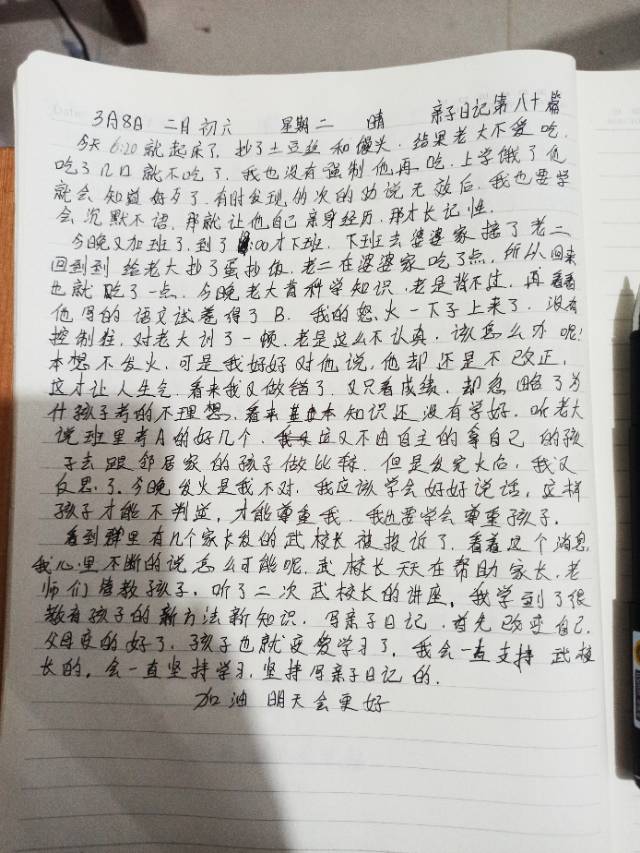 3月8日 二月初六 星期二 晴 亲子日记第八十篇
今天6:20就起床了,抄了土豆丝和馒头,结果老大不爱吃,
吃了几口就不吃了,我也没有强制他再吃,上学饿了他
就会知道好歹了,有时发现的次的劝说无效后,我也要学
会沉默不语,那就让他自己亲身经历,那才长记性.
今晚又加班了,到了:00才下班,下班去婆婆家接了老二
回到到给老大抄了蛋抄饭,老二在婆婆家吃了点,所以回来
也就吃了一点,今晚老大背科学知识,老是背不过,再看看
他写的语文试卷得了B,我的怒火一下子上来了,没有
控制住,对老大训了一顿,老是这么不认真,该怎么办呢!
本想不发火,可是我好好对他说,他却还是不改正,
这才让人生气,看来我又做错了,又只看成绩,却忽略了为
什孩子考的不理想,看来基本知识还没有学好,听老大
说班里考A的好几个,我又不由自主的拿自己的孩
子去跟邻居家的孩子做比较,但是发完火后,我又
反思了,今晚发火是我不对,我应该学会好好说话,这样
孩子才能不判逆,才能尊重我,我也要学会尊重孩子.
看到群里有几个家长发的武校长被投诉了,看着这个消息,
我心里不断的说怎么可能呢,武校长天天在帮助家长,老
师们管教孩子,听了二次武校长的讲座,我学到了很
教育孩子的新方法新知识,写亲子日记,首先改变自己,
父母变的好了,孩子也就变爱学习了,我会一直支持武校
长的,会一直坚持学习,坚持写亲子日记的.
加油 明天会更好